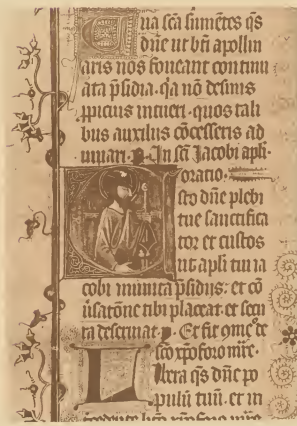 Tua scā sumētes qs
dn̄e ut bti apollin
aris nos foueant continu
ata p̄sidia. q̄a nō desinis
ppicius intueri. quos tali
bus auxiliis cōcesseris ad
iuuari. In scī Jacobi apli.
oratio.
Esto dn̄e plebi
tue sanctifica
tor et custos
ut apli tui ia
cobi munita p̄sidiis. et cō
uersatōne tibi placeat. et secu
ra deseruiat. Et fit qm̄e de
scō xpoforo mr̄e.
Lleta qs dn̄e po
pulū tuū. et in